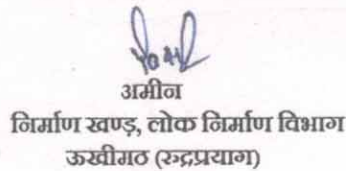 अमीन
निर्माण खण्ड़, लोक निर्माण विभाग
ऊखीमठ (रूद्रप्रयाग)